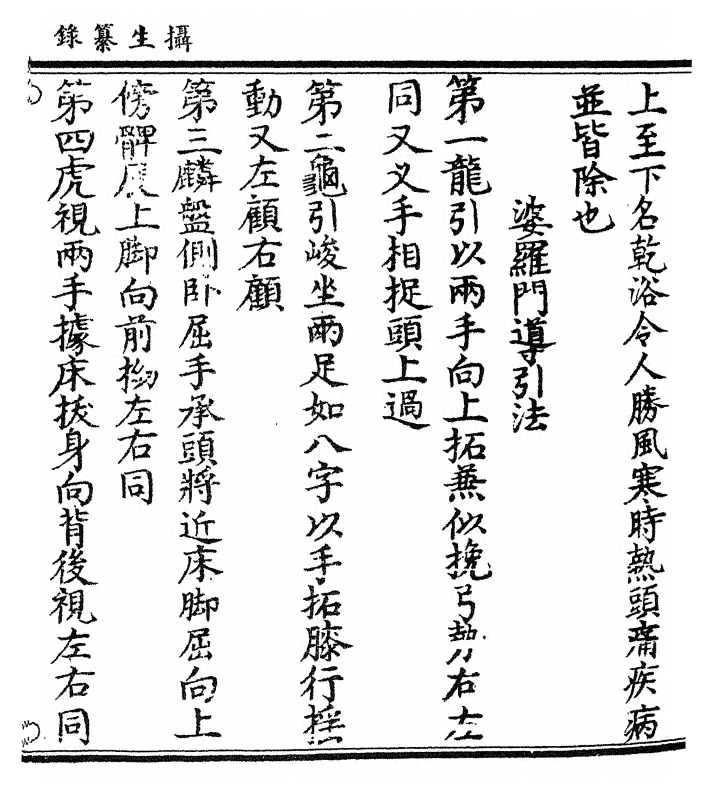 攝生纂錄
上至下名乾浴令人勝風寒時熱頭痛疾病
並皆除也
婆羅門導引法
第一龍引以兩手向上拓兼似挽弓勢右左
同又叉手相捉頭上過
第二龜引峻坐兩足如八字以手拓膝行搖
動又左顧右顧
第三麟盤側卧屈手承頭將近床脚屈向上
傍髀展上脚向前拗左右同
第四虎視兩手據床拔身向背後視左右同